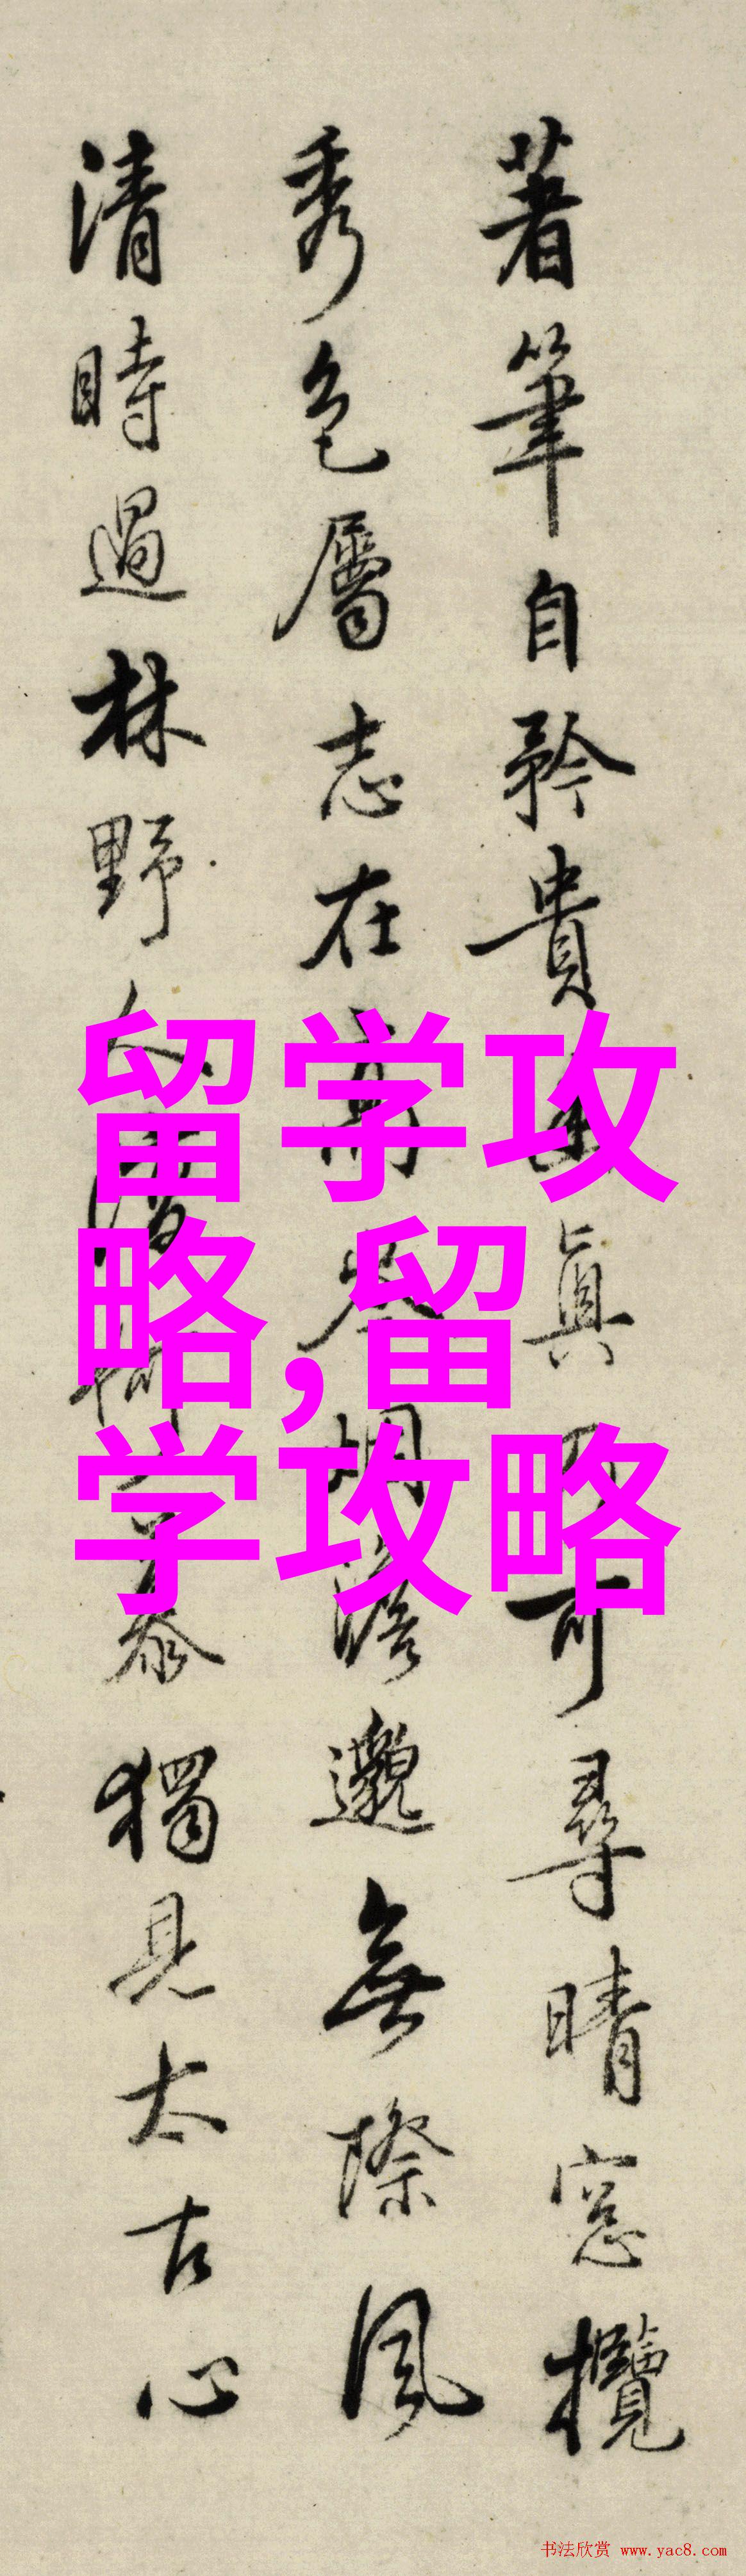 著筆自矜貴 真 可尋晴窓攬
秀色屬志在 澹邈無際風
清時過林野人 泰獨見太古心
留学攻
略,留
学攻略
书法欣赏 www.yac8.com